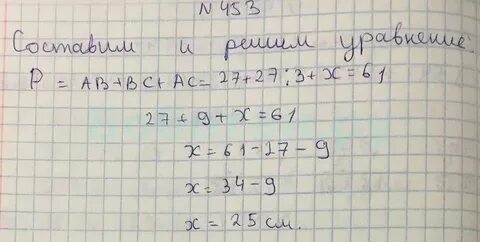 N 453
Составим и решим уравнение:
P = AB+BC+AC= 27+27:3+x=61
27+9+x=61
x=61-27-9
x=34-9
x=25см.